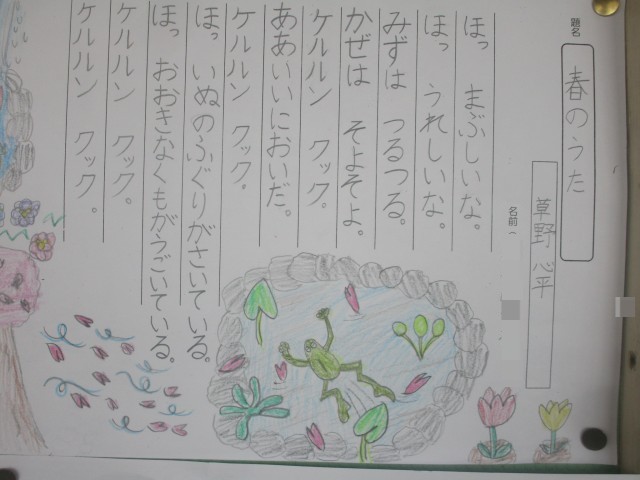 題名
春のうた
草野心平
名前(
ほっ まぶしいな。
ほっ うれしいな。
みずは つるつる。
かぜは そよそよ。
ケルルン クック。
ああいいにおいだ。
ケルルン クック。
ほっ いぬのふぐりがさいている。
ほっ おおきなくもがうごいている。
ケルルン クック。
ケルルン クック。